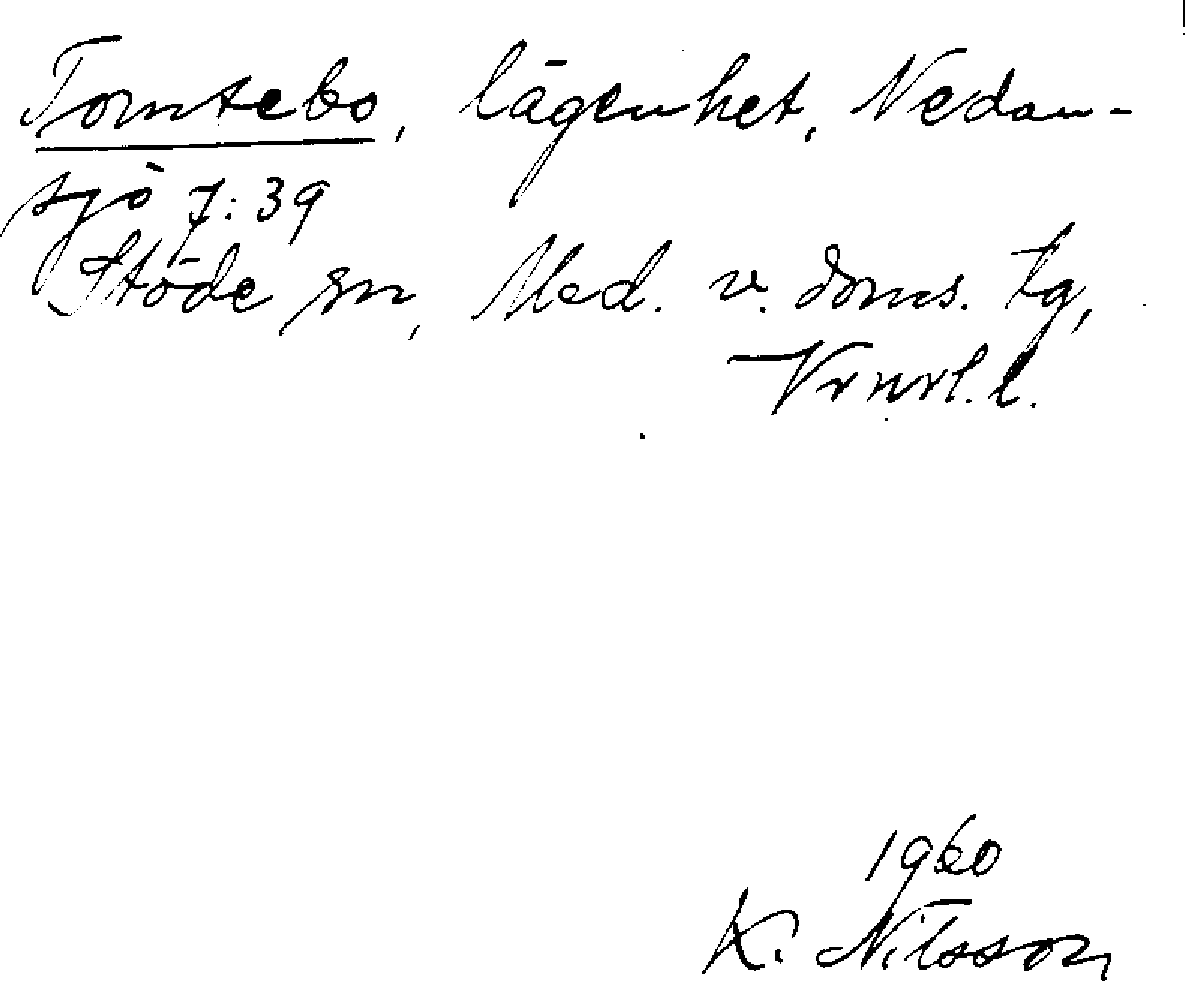 Tomtebo, lägenhet, Nedan-
sjö 7:39
Stöde sn, Med. v. doms. tg,
Vrnrl. l.
1960
K. Nilsson